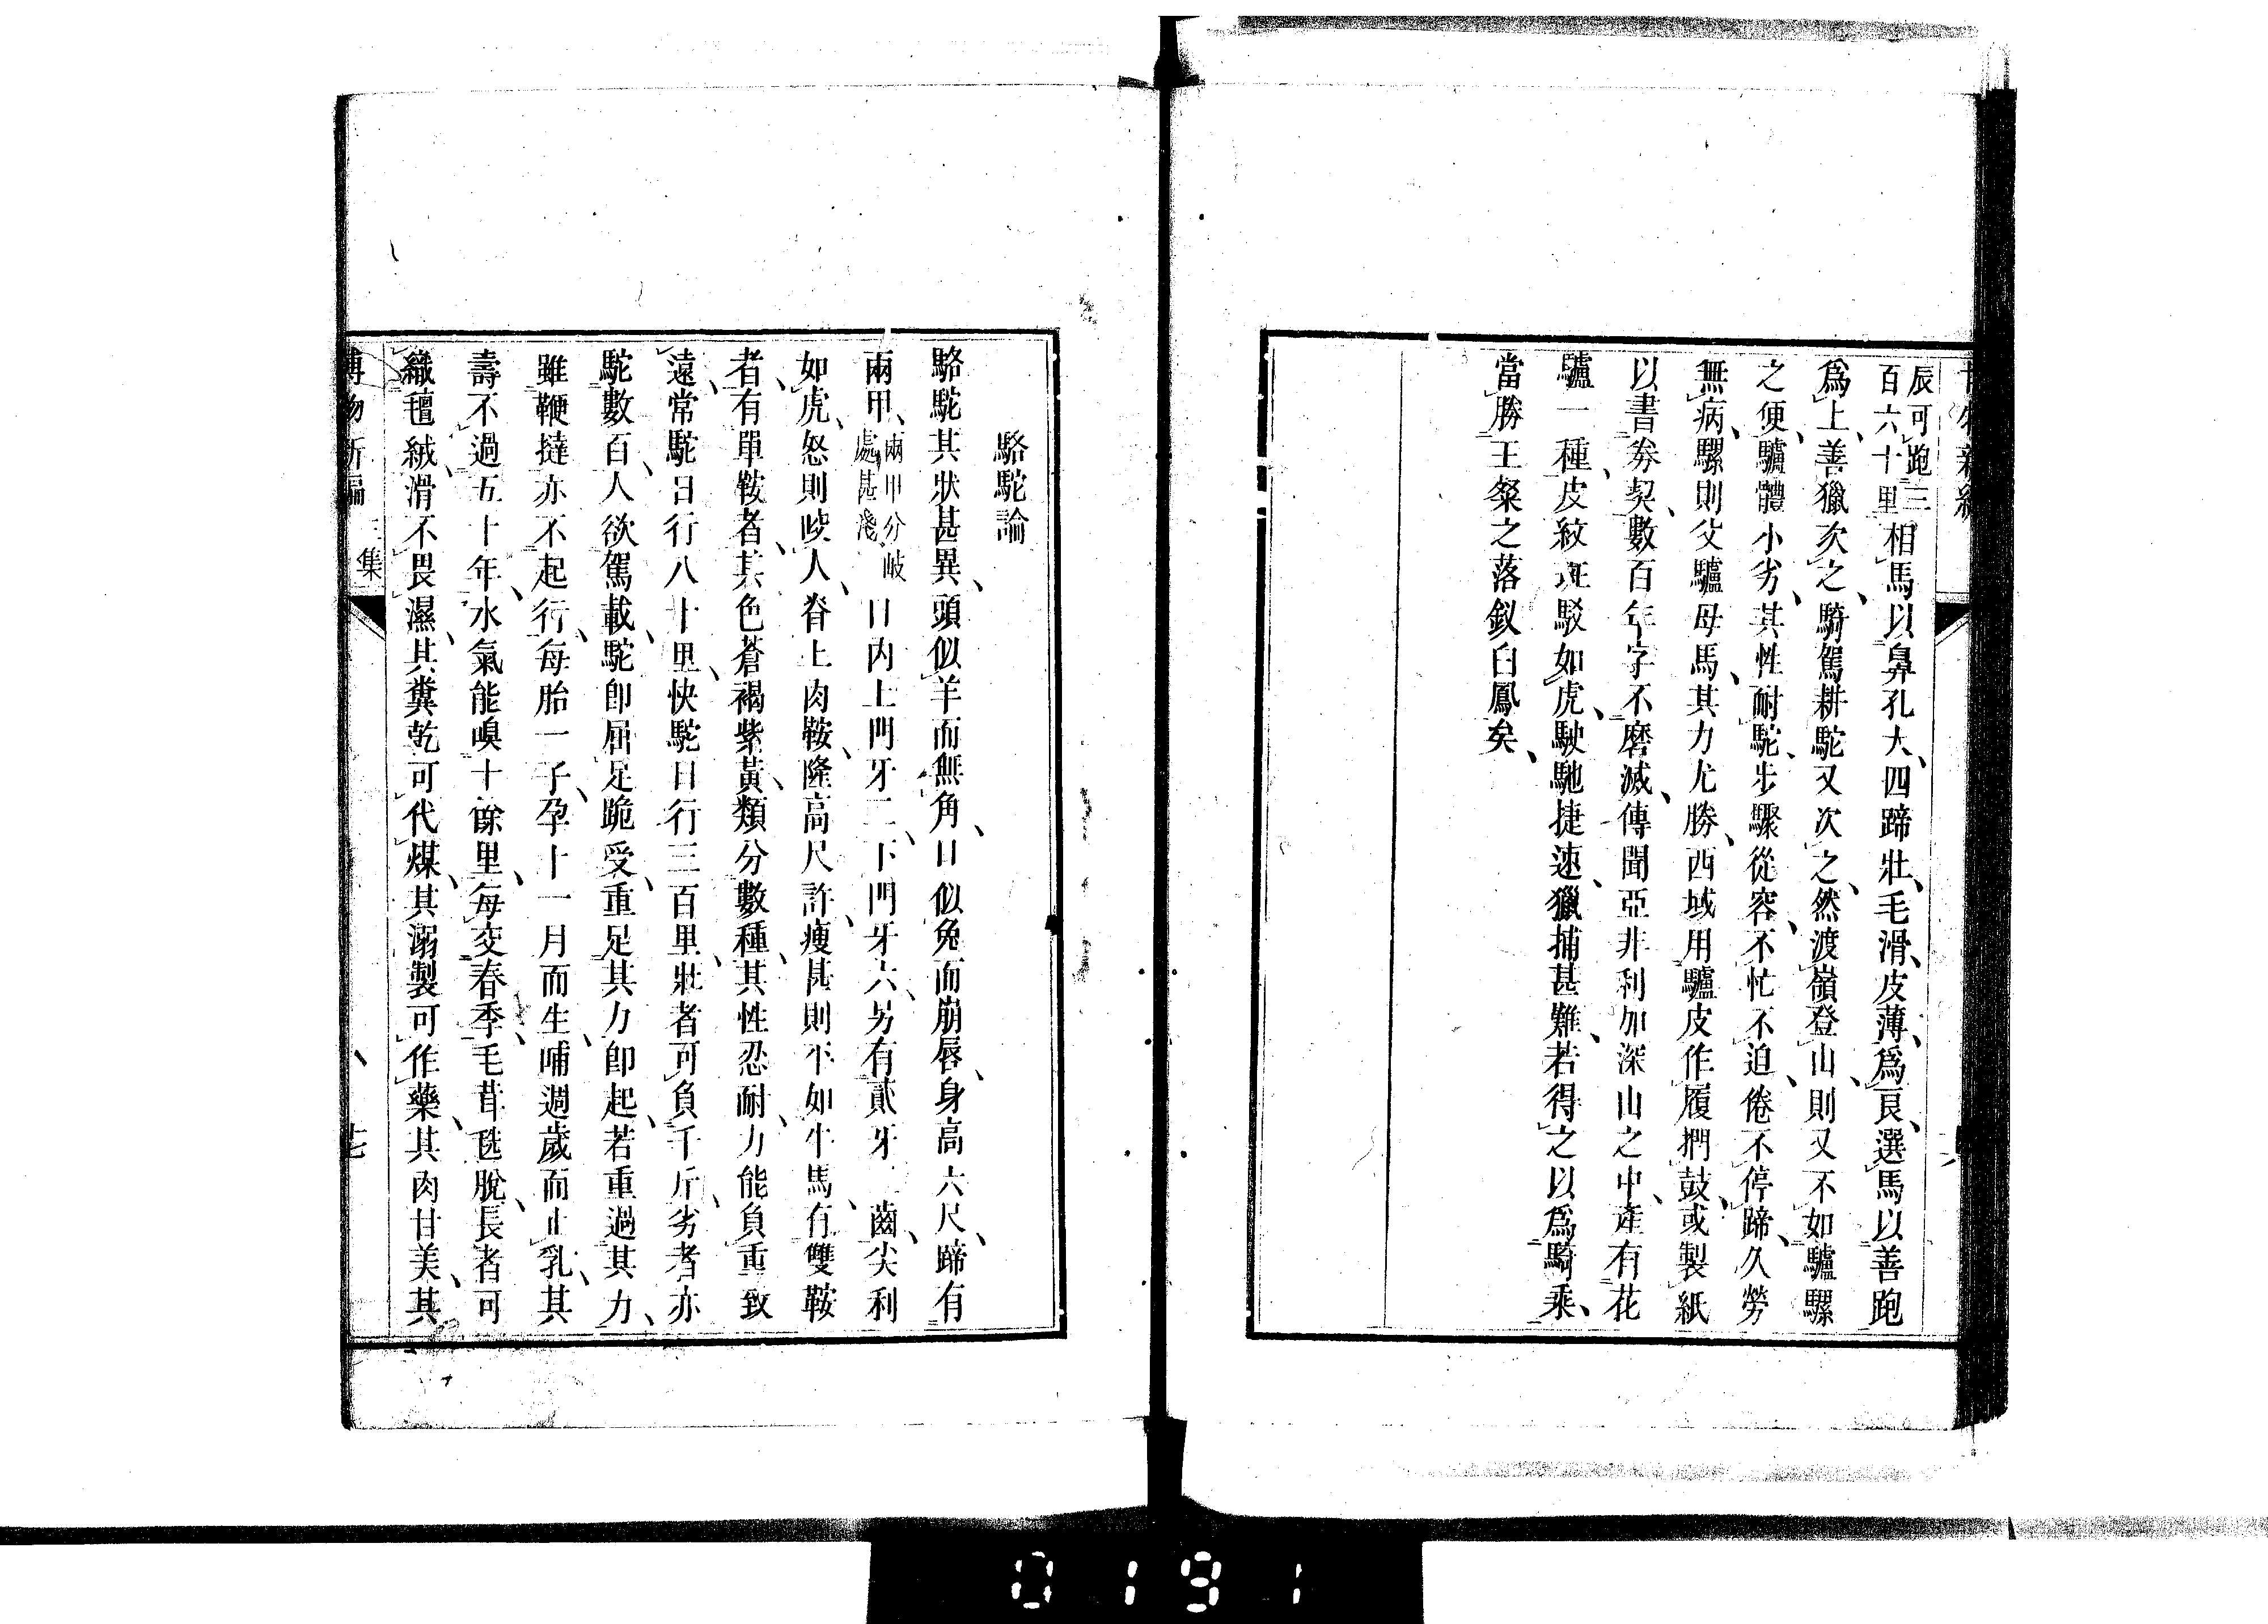 辰可跑三
百六十里相馬以鼻孔大、四蹄壯、毛滑、皮薄、爲良、選馬以善跑
爲上、善獵次之、騎駕耕駝又次之、然渡嶺登山、則又不如驢騾
之便、驢體小劣、其性耐駝、步驟從容、不忙不迫、倦不停蹄、久勞
無病、騾則父驢母馬、其力尤勝、西域用驢皮作履捫鼓、或製紙
以書券契、數百年字不磨滅、傳聞亞非利加深山之中、產有花
驢一種、皮紋斑駁如虎、駛馳捷速、獵捕甚難、若得之以爲騎乘、
當勝王粲之落釵白鳳矣、
駱駝論
駱駝其狀甚異、頭似羊而無角、口似兔而崩唇、身高六尺、蹄有
兩甲、兩甲分岐處甚淺、口內上門牙二、下門牙六、另有貳牙、齒尖利
如虎、怒則咬人、脊上肉鞍、隆高尺許、瘦甚則平如牛馬、有雙鞍
者、有單鞍者、其色蒼褐紫黃、類分數種、其性忍耐、力能負重致
遠、常駝日行八十里、快駝日行三百里、壯者可負千斤、劣者亦
駝數百、人欲駕載、駝卽屈足跪受、重足其力卽起、若重過其力、
雖鞭撻亦不起行、每胎一子、孕十一月而生、哺週歲而止乳、其
壽不過五十年、水氣能嗅十餘里、每交春季、毛茸毯脫、長者可
織氊絨、滑不畏濕、其糞乾可代煤、其溺製可作藥、其肉甘美、其
博物新編 三集 十七
0191